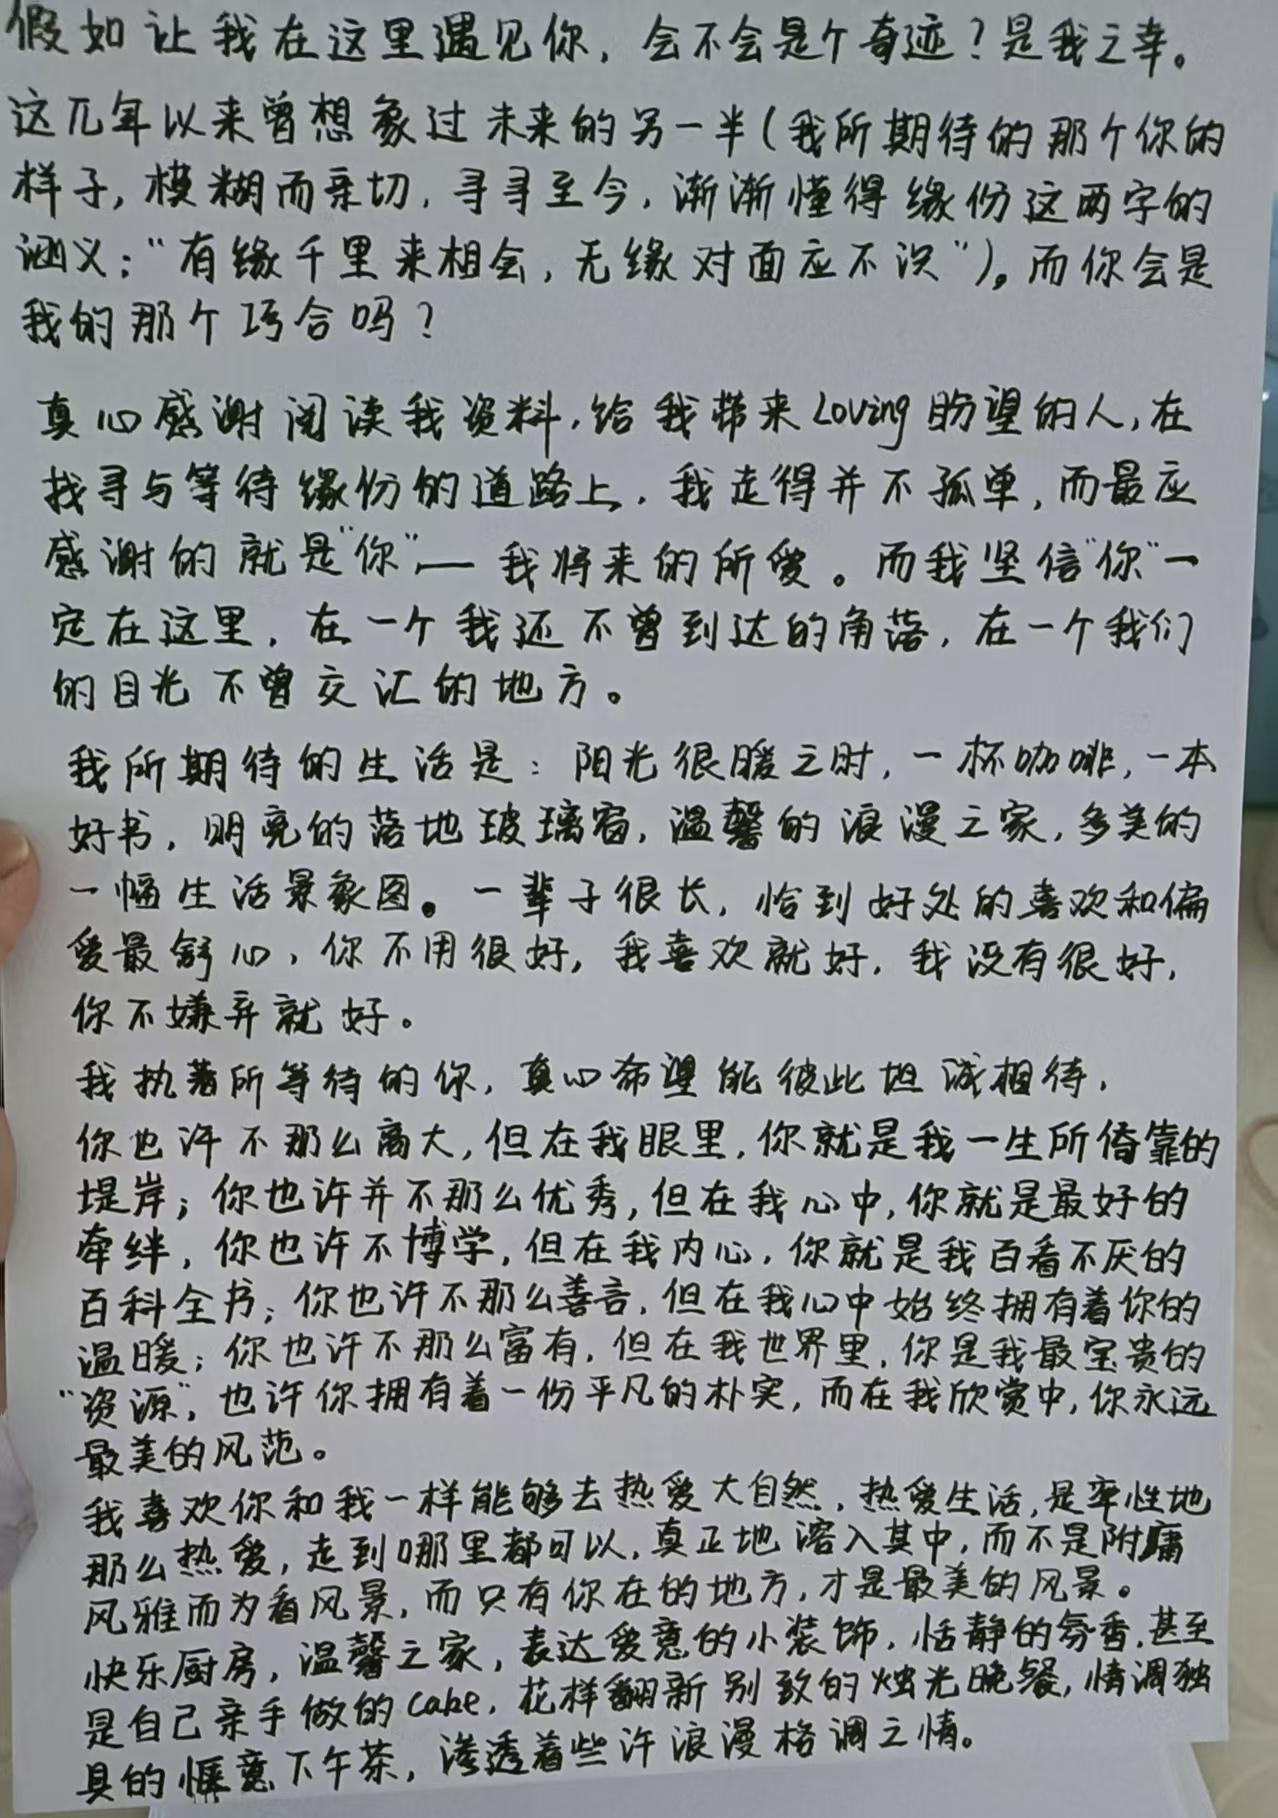 假如让我在这里遇见你，会不会是个奇迹？是我之幸。
这几年以来曾想象过未来的另一半（我所期待的那个你的
样子，模糊而亲切，寻寻至今，渐渐懂得缘份这两字的
涵义：“有缘千里来相会，无缘对面应不识”）。而你会是
我的那个巧合吗？
真心感谢阅读我资料，给我带来Loving盼望的人，在
找寻与等待缘份的道路上，我走得并不孤单，而最应
感谢的就是“你”，—我将来的所爱。而我坚信“你”一
定在这里，在一个我还不曾到达的角落，在一个我们
的目光不曾交汇的地方。
我所期待的生活是：阳光很暖之时，一杯咖啡，一本
好书，明亮的落地玻璃窗，温馨的浪漫之家，多美的
一幅生活景象图。一辈子很长，恰到好处的喜欢和偏
爱最舒心，你不用很好，我喜欢就好，我没有很好，
你不嫌弃就好。
我执着所等待的你，真心希望能彼此坦诚相待，
你也许不那么高大，但在我眼里，你就是我一生所倚靠的
堤岸；你也许并不那么优秀，但在我心中，你就是最好的
牵绊，你也许不博学，但在我内心，你就是我百看不厌的
百科全书；你也许不那么善言，但在我心中始终拥有着你的
温暖；你也许不那么富有，但在我世界里，你是我最宝贵的
“资源”，也许你拥有着一份平凡的朴实，而在我欣赏中，你永远
最美的风范。
我喜欢你和我一样能够去热爱大自然，热爱生活，是率性地
那么热爱，走到哪里都可以，真正地溶入其中，而不是附庸
风雅而为看风景，而只有你在的地方，才是最美的风景。
快乐厨房，温馨之家，表达爱意的小装饰，恬静的氛香，甚至
是自己亲手做的cake，花样翻新别致的烛光晚餐，情调独
具的惬意下午茶，渗透着些许浪漫格调之情。